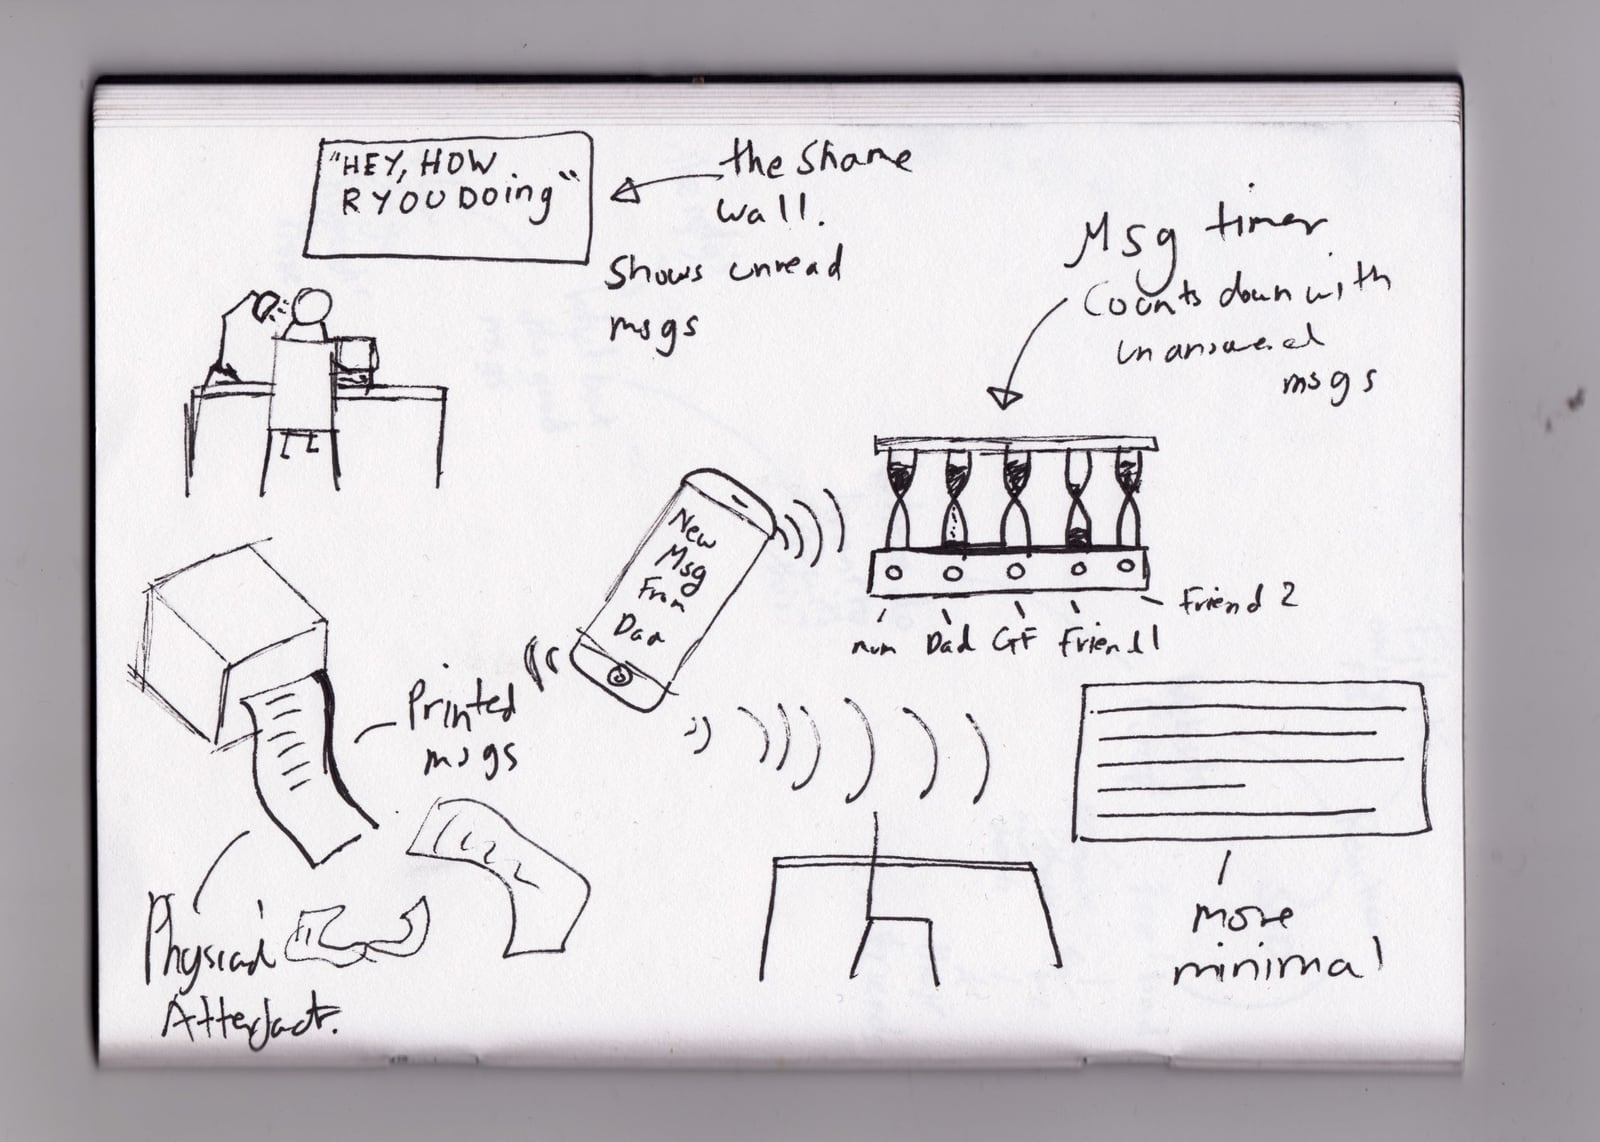 "HEY, HOW
R YOU DOing"
the Shame
wall.
Shows unread
msgs
Msg timer
Counts down with
unanswered
msgs
New
Msg
From
Dad
mum Dad GF Friend 1
Friend 2
Printed
msgs
Physical
Atterfact.
more
minimal